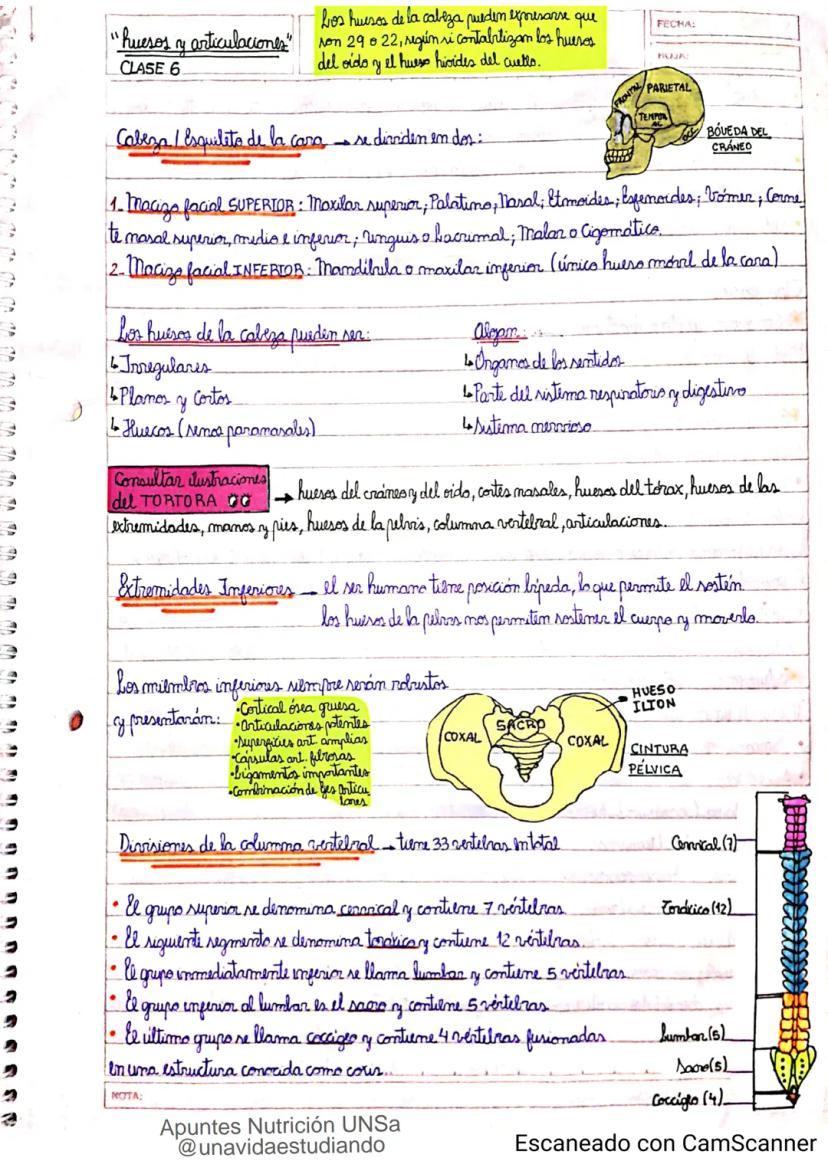 "huesos y articulaciones"
CLASE 6
Los huesos de la cabeza pueden expresarse que
son 29 o 22, según si contabilizam los huesos
del oído y el hueso hioides del cuello.
FECHA:
HOJA:
FRONTAL
PARIETAL
TEMPOR
AL
OCC.
BÓVEDA DEL
CRÁNEO
Cabeza / Esqueleto de la cara → se dividen en dos:
1- Macizo facial SUPERIOR: Maxilar superior; Palatino; Nasal; Etmoides; Esfenoides; Vómer; Corne
te nasal superior, medio e inferior; unguis o lacrimal; Malar o Cigomático.
2- Macizo facial INFERIOR: Mandíbula o maxilar inferior (único hueso móvil de la cara)
Los huesos de la cabeza pueden ser:
↳ Irregulares
↳ Planos y cortos
↳ Huecos (senos paranasales)
Alojan:
↳ Órganos de los sentidos
↳ Parte del sistema respiratorio y digestivo
↳ Sistema nervioso
Consultar ilustraciones
del TORTORA → huesos del cráneo y del oído, cortes nasales, huesos del tórax, huesos de las
extremidades, manos y pies, huesos de la pelvis, columna vertebral, articulaciones.
Extremidades Inferiores → el ser humano tiene posición bípeda, lo que permite el sostén
los huesos de la pelvis nos permiten sostener el cuerpo y moverlo.
Los miembros inferiores siempre serán robustos
y presentarán:
• Cortical ósea gruesa
• Articulaciones potentes
• Superficies art. amplias
• Cápsulas art. fibrosas
• Ligamentos importantes
• Combinación de ejes articu
lares
COXAL
SACRO
COXAL
HUESO
ILION
CINTURA
PÉLVICA
Divisiones de la columna vertebral → tiene 33 vertebras en total
• El grupo superior se denomina cervical y contiene 7 vértebras
• El siguiente segmento se denomina torácico y contiene 12 vértebras
• El grupo inmediatamente inferior se llama lumbar y contiene 5 vértebras
• El grupo inferior al lumbar es el sacro y contiene 5 vértebras
• El último grupo se llama coccígeo y contiene 4 vértebras fusionadas
en una estructura conocida como coxis.
Cervical (7)
Torácico (12)
Lumbar (5)
Sacro (5)
Coccígeo (4)
NOTA:
Apuntes Nutrición UNSa
@unavidaestudiando
Escaneado con CamScanner